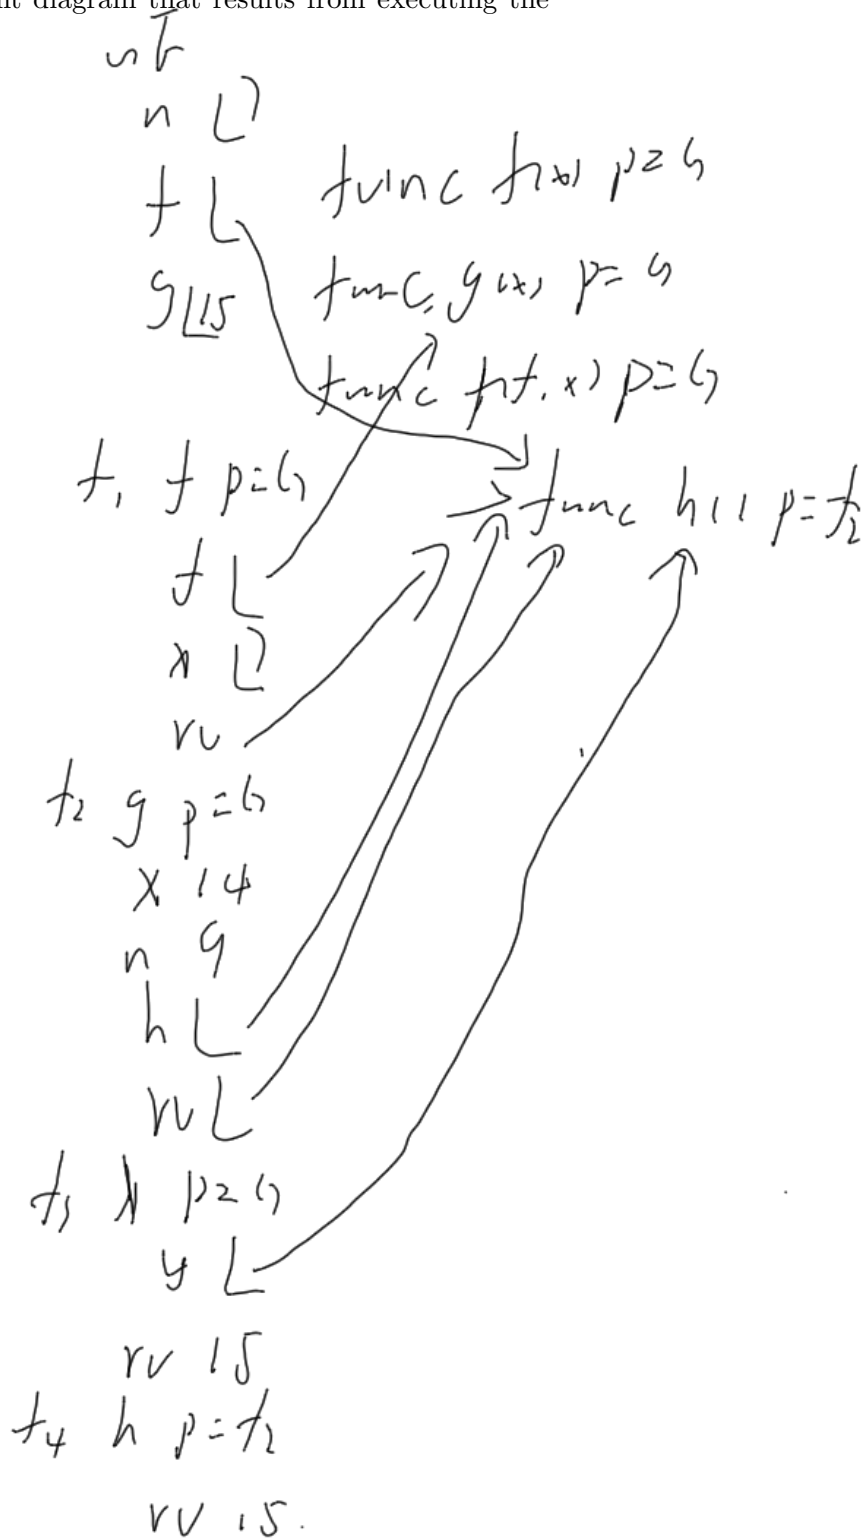 nt diagram that results from executing the
n 7
f
func f(x) p=G
g 15
func g(x) p=G
func f(f, x) p=G
f1 f p=G
func h() p=f2
f
x 7
rv
f2 g p=G
x 14
n 9
h
rv
f3 λ p=G
y
rv 15
f4 h p=f2
rv 15.